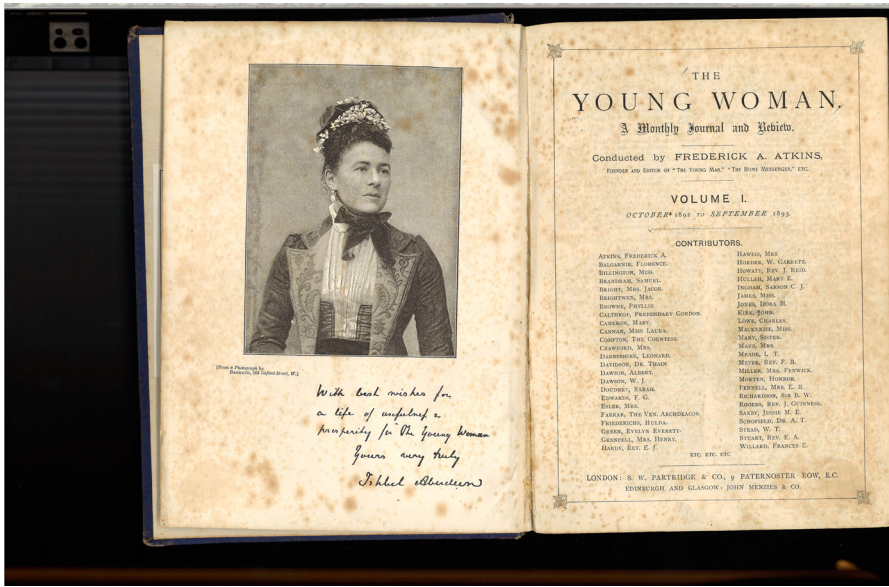 [From a Photograph by
BARRAUD, 263 Oxford Street, W.]
With best wishes for
a life of usefulness &
prosperity for "The Young Woman
Yours very truly
Ishbel Aberdeen
THE
YOUNG WOMAN.
A Monthly Journal and Review.
Conducted by FREDERICK A. ATKINS,
FOUNDER AND EDITOR OF "THE YOUNG MAN," "THE HOME MESSENGER," ETC.
VOLUME I.
OCTOBER 1892 TO SEPTEMBER 1893.
CONTRIBUTORS.
ATKINS, FREDERICK A.
BALGARNIE, FLORENCE.
BILLINGTON, MISS.
BRANDRAM, SAMUEL.
BRIGHT, MRS. JACOB.
BRIGHTWEN, MRS.
BROWNE, PHYLLIS.
CALTHROP, PREBENDARY GORDON.
CAMERON, MARY.
CANNAN, MISS LAURA.
COMPTON, THE COUNTESS.
CRAWFORD, MRS.
DARBYSHIRE, LEONARD.
DAVIDSON, DR. THAIN
DAWSON, ALBERT.
DAWSON, W. J.
DOUDNEY, SARAH.
EDWARDS, F. G.
ESLER, MRS.
FARRAR, THE VEN. ARCHDEACON.
FRIEDERICHS, HULDA.
GREEN, EVELYN EVERETT-
GRENFELL, MRS. HENRY.
HARDY, REV. E. J.
HAWEIS, MRS
HORDER, W. GARRETT.
HOWATT, REV. J. REID.
HULLAH, MARY E.
INGHAM, SARSON C. J.
JAMES, MISS.
JONES, DORA M.
KIRK, JOHN.
LOWE, CHARLES.
MACKENZIE, MISS.
MARY, SISTER.
MAYO, MRS.
MEADE, L. T.
MEYER, REV. F. B.
MILLER, MRS. FENWICK.
MORTEN, HONNOR.
PENNELL, MRS. E. R.
RICHARDSON, SIR B. W.
ROGERS, REV. J. GUINNESS.
SAXBY, JESSIE M. E.
SCHOFIELD, DR. A. T.
STEAD, W. T.
STUART, REV. E. A.
WILLARD, FRANCES E.
ETC. ETC. ETC
LONDON: S. W. PARTRIDGE & CO., 9 PATERNOSTER ROW, E.C.
EDINBURGH AND GLASGOW: JOHN MENZIES & CO.